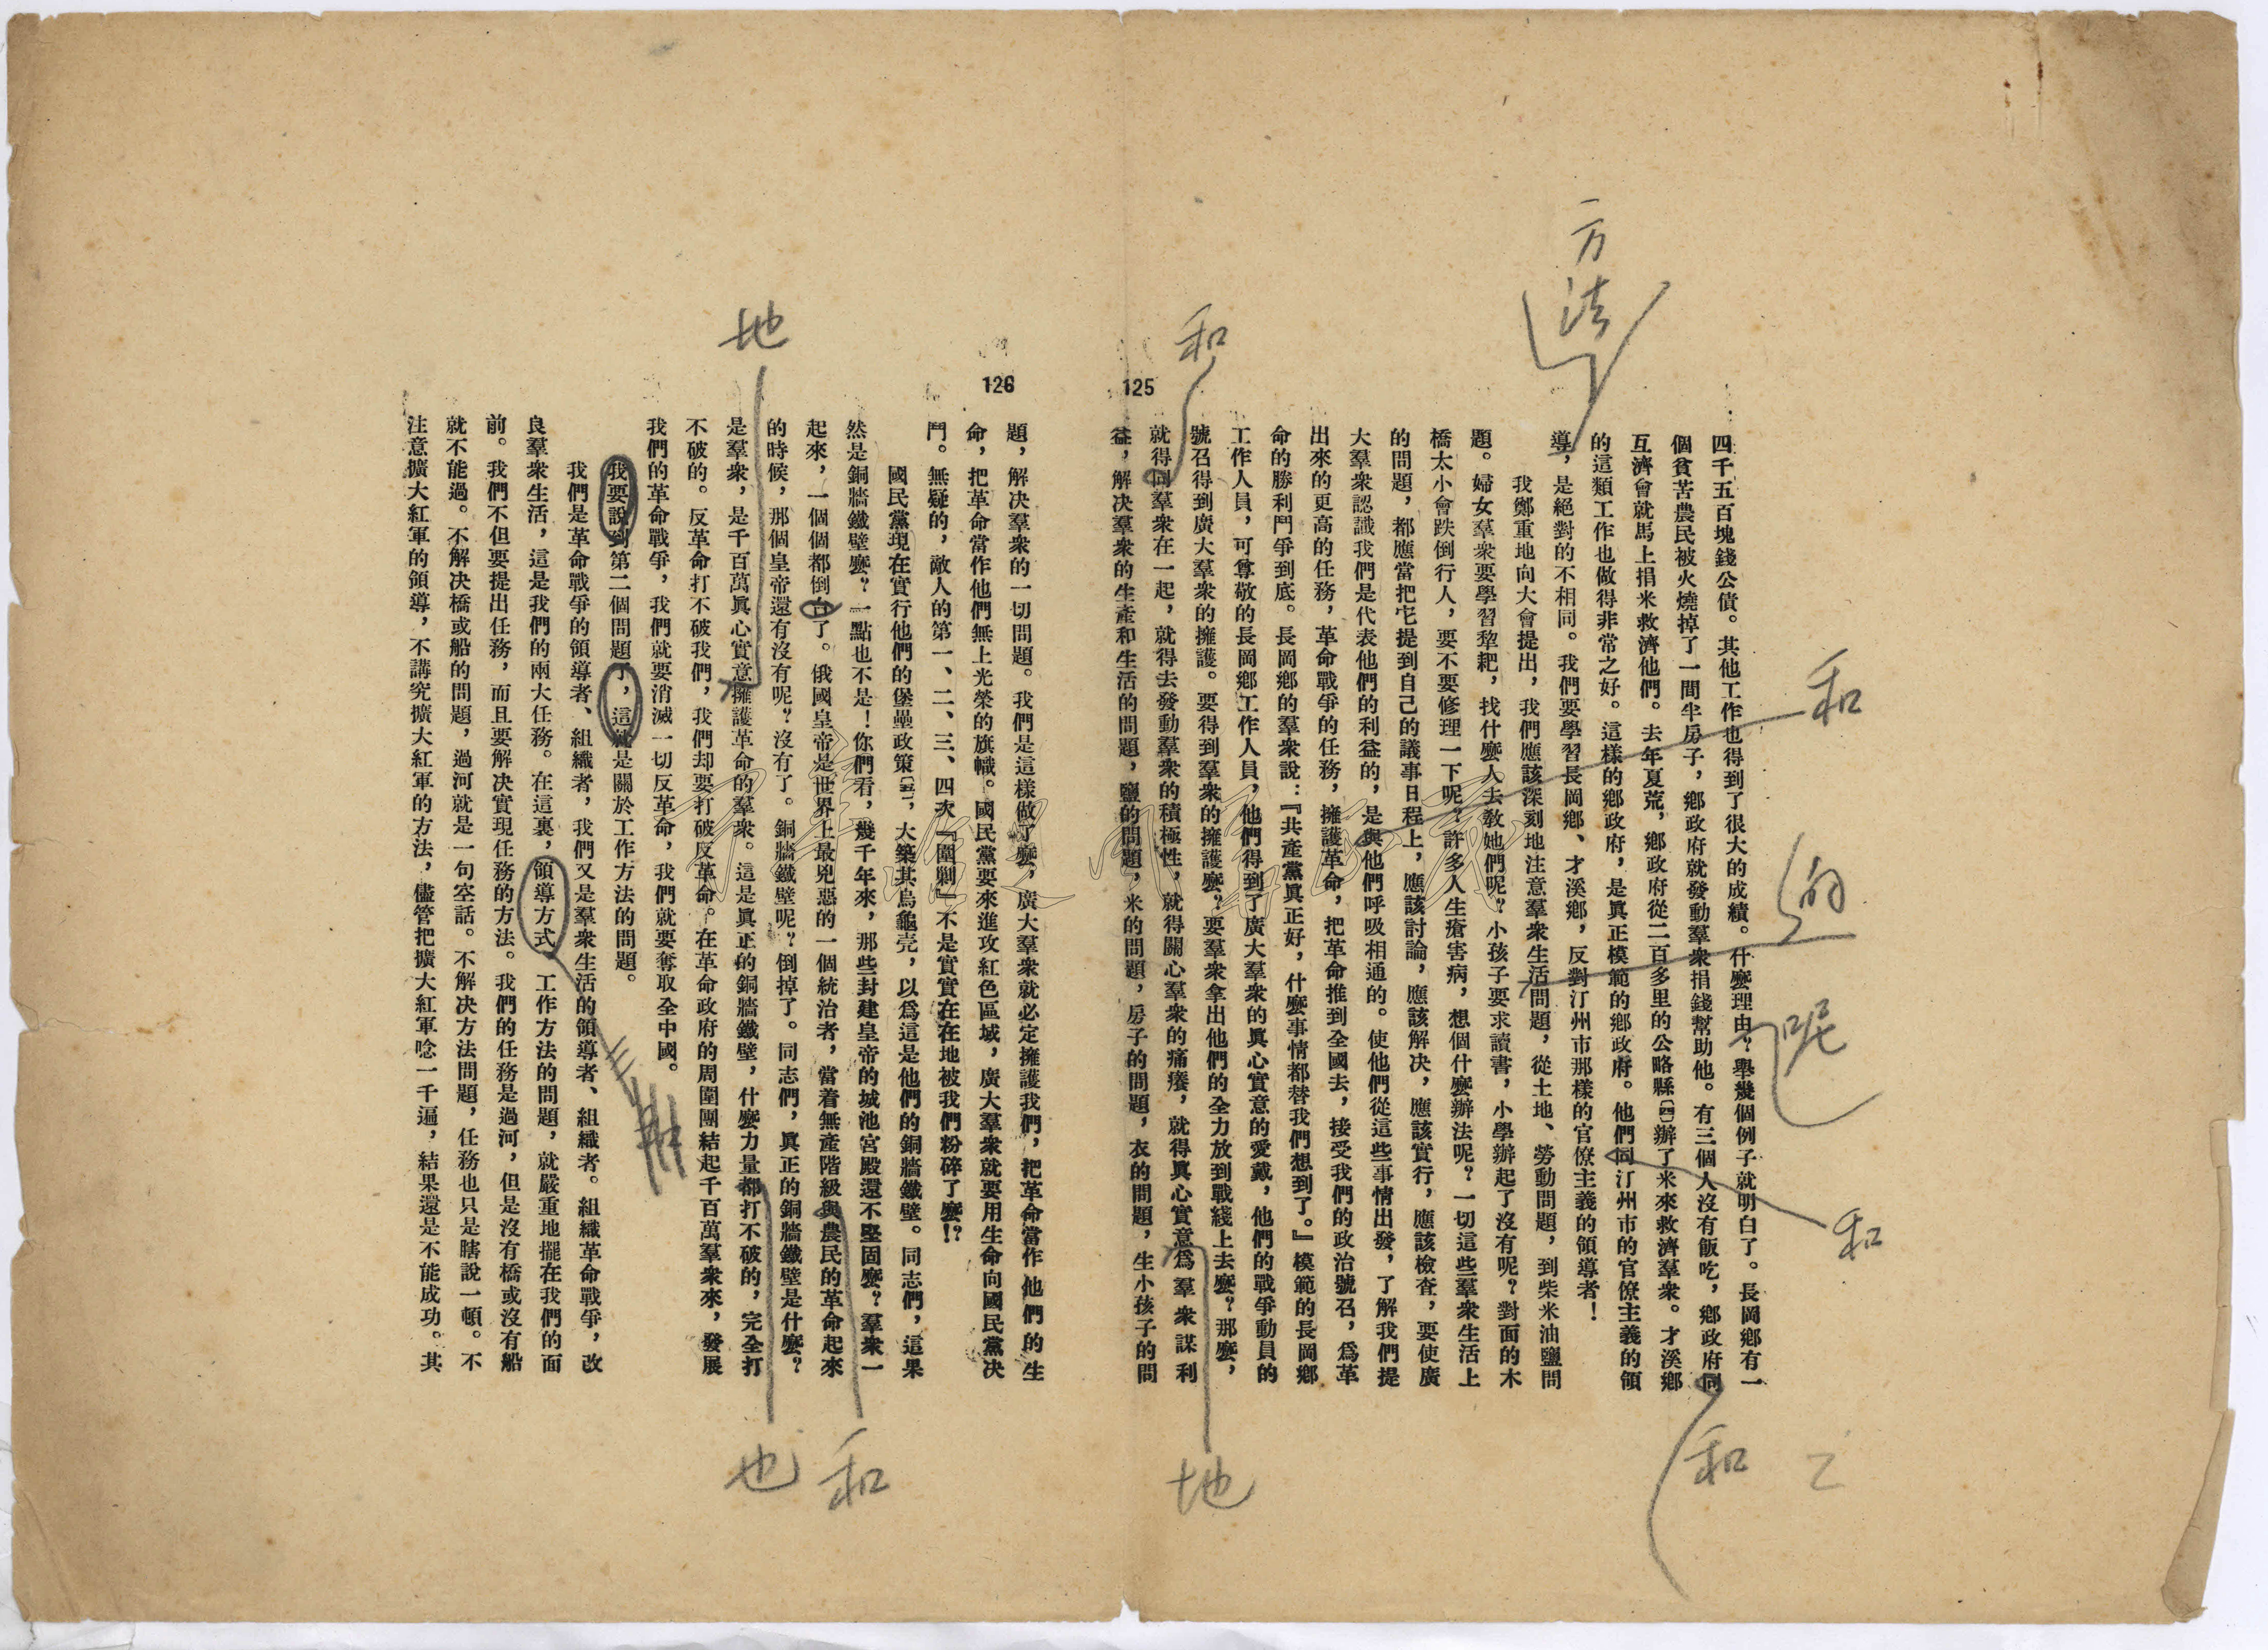 125
四千五百塊錢公債。其他工作也得到了很大的成績。什麼理由？舉幾個例子就明白了。長岡鄉有一
個貧苦農民被火燒掉了一間半房子，鄉政府就發動羣衆捐錢幫助他。有三個人沒有飯吃，鄉政府同
互濟會就馬上捐米救濟他們。去年夏荒，鄉政府從二百多里的公略縣〔四〕辦了米來救濟羣衆。才溪鄉
的這類工作也做得非常之好。這樣的鄉政府，是眞正模範的鄉政府。他們同汀州市的官僚主義的領
導，是絕對的不相同。我們要學習長岡鄉、才溪鄉，反對汀州市那樣的官僚主義的領導者！
我鄭重地向大會提出，我們應該深刻地注意羣衆生活問題，從土地、勞動問題，到柴米油鹽問
題。婦女羣衆要學習犂耙，找什麼人去敎她們呢？小孩子要求讀書，小學辦起了沒有呢？對面的木
橋太小會跌倒行人，要不要修理一下呢？許多人生瘡害病，想個什麼辦法呢？一切這些羣衆生活上
的問題，都應當把它提到自己的議事日程上，應該討論，應該解决，應該實行，應該檢查，要使廣
大羣衆認識我們是代表他們的利益的，是與他們呼吸相通的。使他們從這些事情出發，了解我們提
出來的更高的任務，革命戰爭的任務，擁護革命，把革命推到全國去，接受我們的政治號召，爲革
命的勝利鬥爭到底。長岡鄉的羣衆說：『共產黨眞正好，什麼事情都替我們想到了。』模範的長岡鄉
工作人員，可尊敬的長岡鄉工作人員，他們得到了廣大羣衆的眞心實意的愛戴，他們的戰爭動員的
號召得到廣大羣衆的擁護。要得到羣衆的擁護麼？要羣衆拿出他們的全力放到戰綫上去麼？那麼，
就得同羣衆在一起，就得去發動羣衆的積極性，就得關心羣衆的痛癢，就得眞心實意爲羣衆謀利
益，解决羣衆的生產和生活的問題，鹽的問題，米的問題，房子的問題，衣的問題，生小孩子的問
126
題，解决羣衆的一切問題。我們是這樣做了麼，廣大羣衆就必定擁護我們，把革命當作他們的生
命，把革命當作他們無上光榮的旗幟。國民黨要來進攻紅色區域，廣大羣衆就要用生命向國民黨决
鬥。無疑的，敵人的第一、二、三、四次『圍剿』不是實實在在地被我們粉碎了麼！？
國民黨現在實行他們的堡壘政策〔五〕，大築其烏龜壳，以爲這是他們的銅牆鐵壁。同志們，這果
然是銅牆鐵壁麼？一點也不是！你們看，幾千年來，那些封建皇帝的城池宮殿還不堅固麼？羣衆一
起來，一個個都倒台了。俄國皇帝是世界上最兇惡的一個統治者，當着無產階級與農民的革命起來
的時候，那個皇帝還有沒有呢？沒有了。銅牆鐵壁呢？倒掉了。同志們，眞正的銅牆鐵壁是什麼？
是羣衆，是千百萬眞心實意擁護革命的羣衆。這是眞正的銅牆鐵壁，什麼力量都打不破的，完全打
不破的。反革命打不破我們，我們却要打破反革命。在革命政府的周圍團結起千百萬羣衆來，發展
我們的革命戰爭，我們就要消滅一切反革命，我們就要奪取全中國。
我要說到第二個問題了，這就是關於工作方法的問題。
我們是革命戰爭的領導者、組織者，我們又是羣衆生活的領導者、組織者。組織革命戰爭，改
良羣衆生活，這是我們的兩大任務。在這裏，領導方式　工作方法的問題，就嚴重地擺在我們的面
前。我們不但要提出任務，而且要解决實現任務的方法。我們的任務是過河，但是沒有橋或沒有船
就不能過。不解决橋或船的問題，過河就是一句空話。不解决方法問題，任務也只是瞎說一頓。不
注意擴大紅軍的領導，不講究擴大紅軍的方法，儘管把擴大紅軍唸一千遍，結果還是不能成功。其
方法
和
的
呢
和
和
乙
和
地
地
和
也